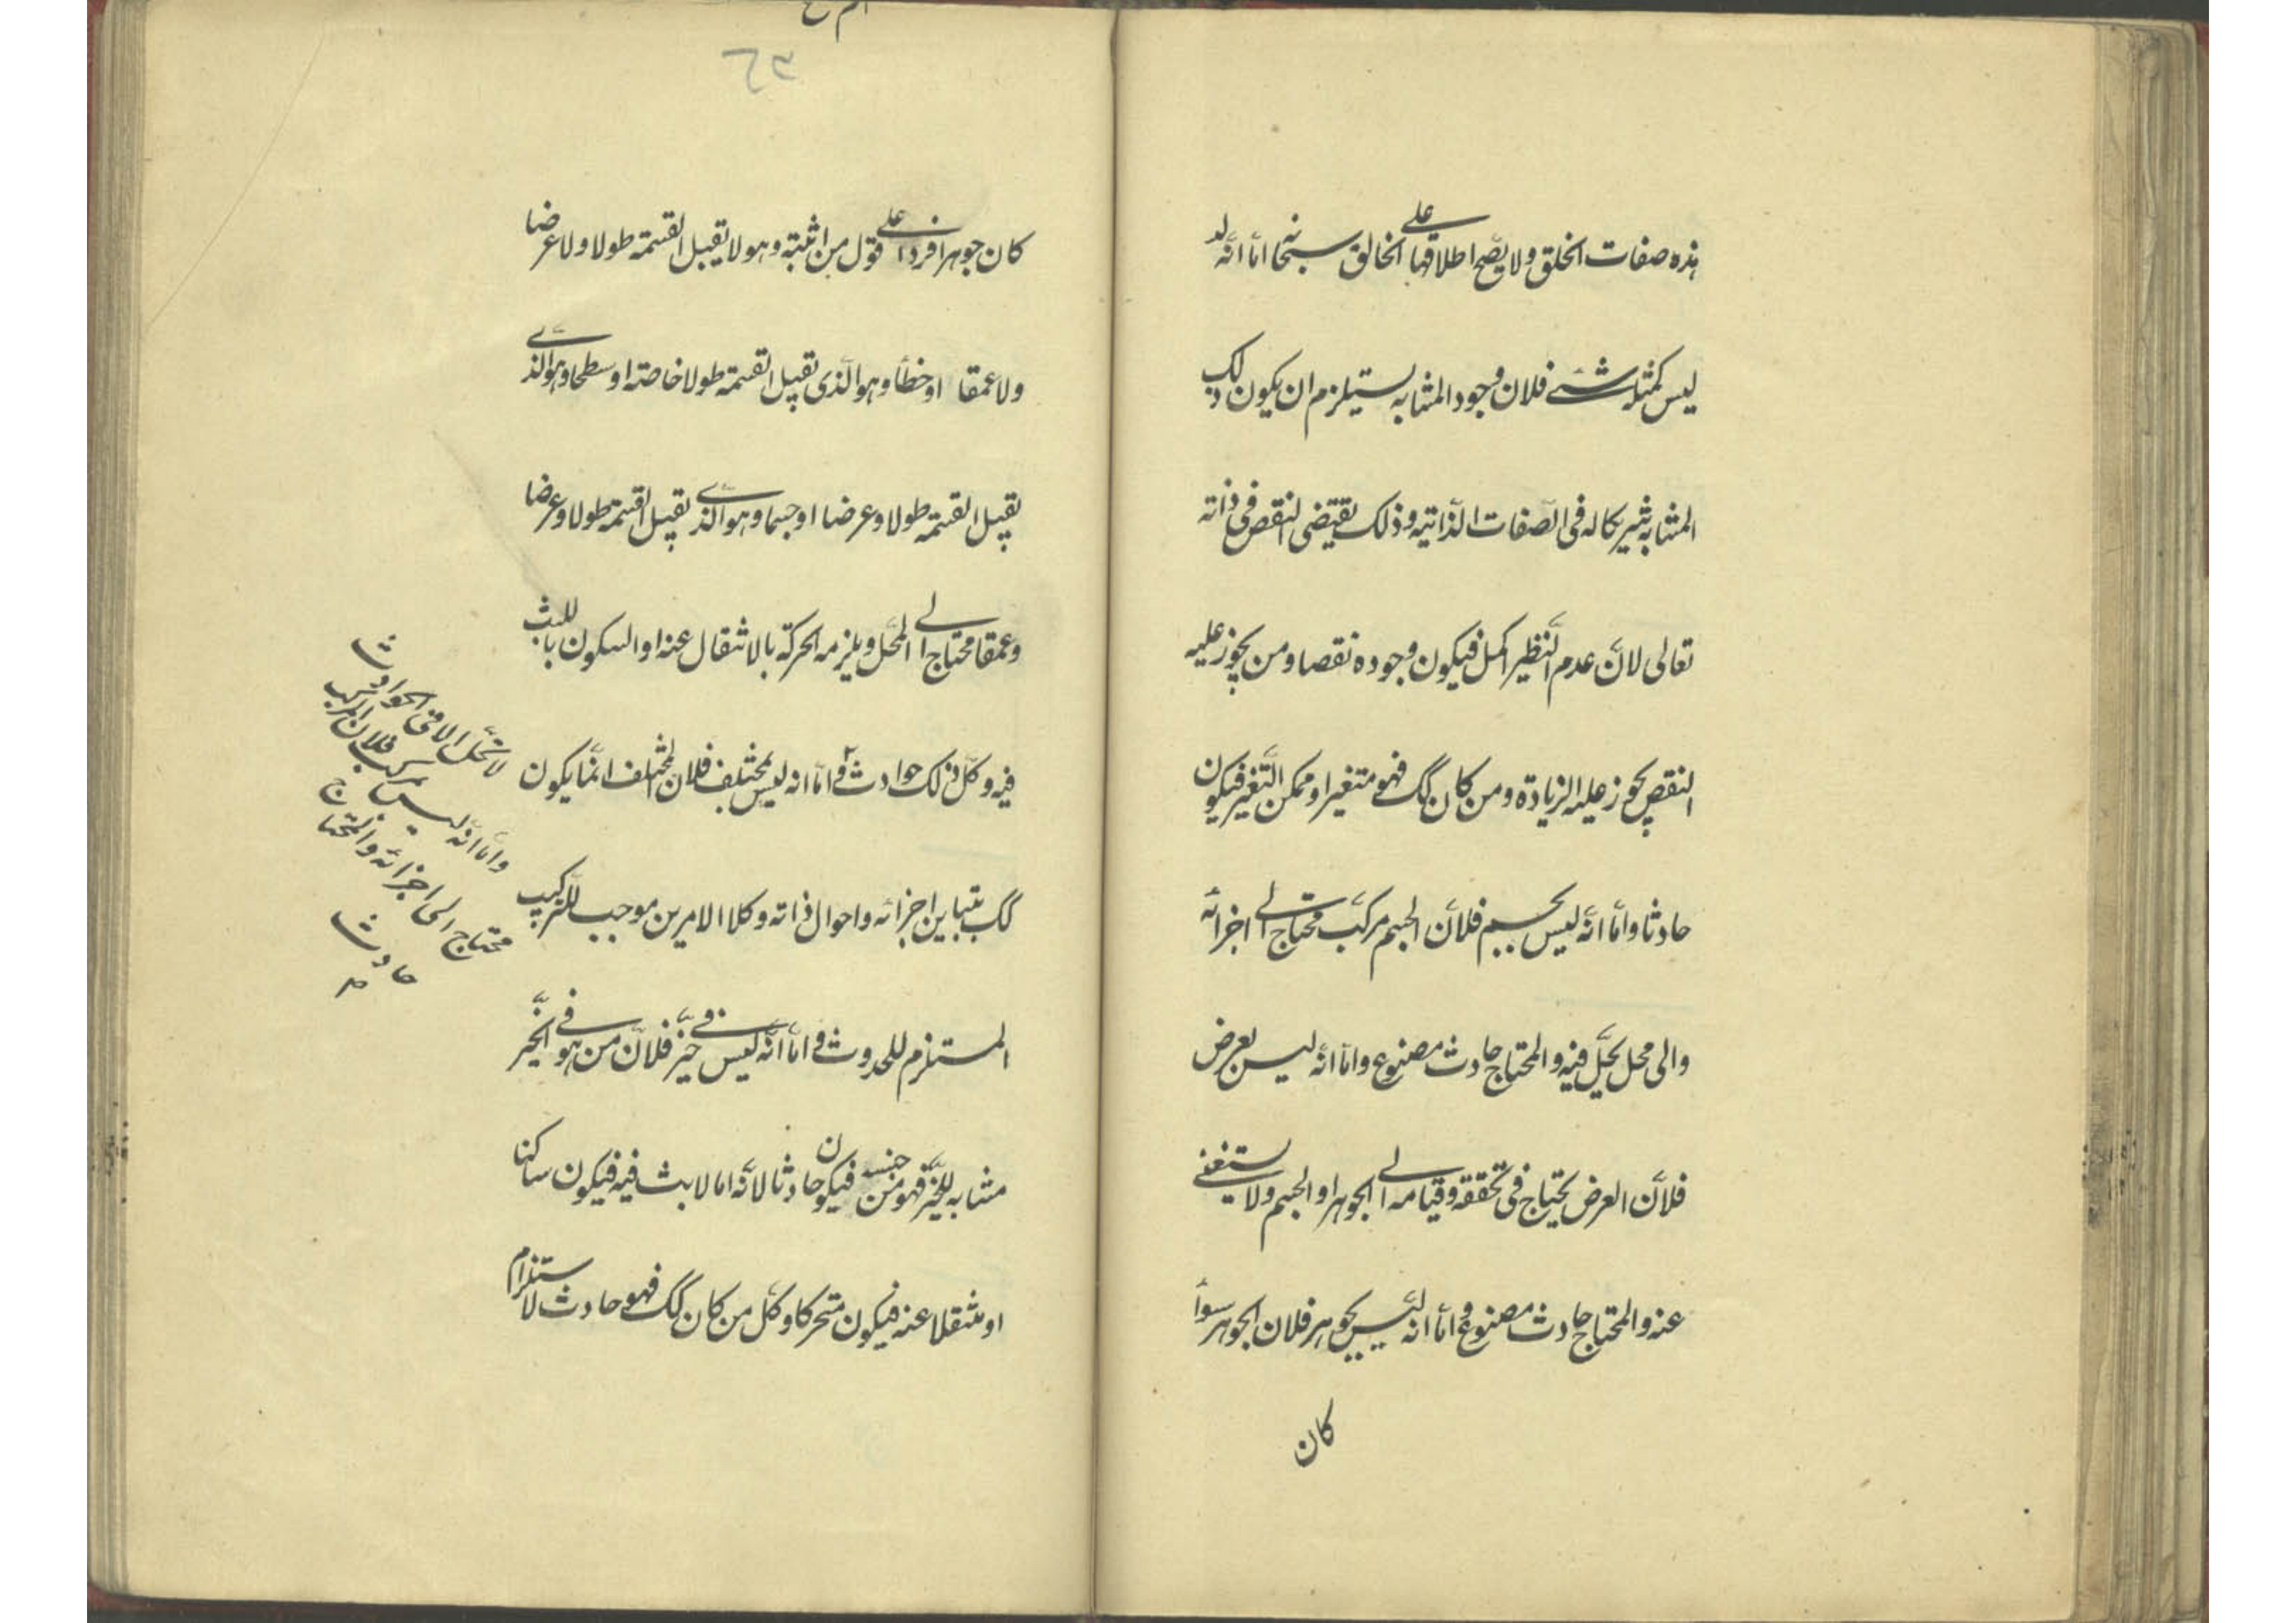 هذه صفات الخلق ولا يصح اطلاقها على الخالق سبحانه اما انه
ليس كمثله شئ فلان وجود المشابه يستلزم ان يكون ذلك
المشابه شريكا له فى الصفات الذاتيه وذلك يقتضى النقص فى ذاته
تعالى لان عدم النظير اكمل فيكون وجوده نقصا ومن يجوز عليه
النقص يجوز عليه الزيادة ومن كان كك فهو متغير او ممكن التغير فيكون
حادثا واما انه ليس بجسم فلان الجسم مركب محتاج الى اجزائه
والى محل يحل فيه والمحتاج حادث مصنوع واما انه ليس بعرض
فلان العرض يحتاج فى تحققه وقيامه الى الجوهر او الجسم ولا يستغنى
عنه والمحتاج حادث مصنوع واما انه ليس بجوهر فلان الجوهر سواء
كان
كان جوهرا فردا على قول من اثبته وهو لا يقبل القسمة طولا ولا عرضا
ولا عمقا او خطا وهو الذى يقبل القسمة طولا خاصة او سطحا وهو الذى
يقبل القسمة طولا وعرضا او جسما وهو الذى يقبل القسمة طولا وعرضا
وعمقا محتاج الى المحل ويلزمه الحركة بالانتقال عنه او السكون باللبث
فيه وكل ذلك حوادث واما انه ليس بمختلف فلان المختلف انما يكون
كك بتباين اجزائه واحوال ذاته وكلا الامرين موجب للتركيب
المستلزم للحدوث واما انه ليس فى حيز فلان من هو فى الحيز
مشابه للحيز فهو من جنسه فيكون حادثا لانه اما لابث فيه فيكون ساكنا
او منتقلا عنه فيكون متحركا وكل من كان كك فهو حادث لاستلزام
لا تحل الا فى الحوادث
واما انه ليس بمركب فلان المركب
محتاج الى اجزائه والمحتاج
حادث